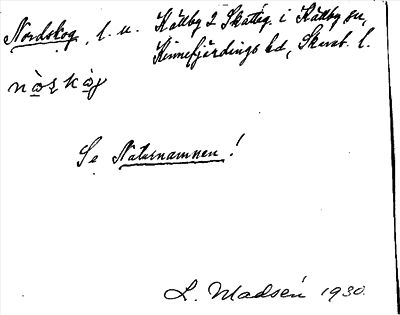 Nordskog, l. u. Källby 2 Skatteg. i Källby sn,
Kinnefjärdings hd, Skarab. l.
nὰskὰg
Se Naturnamnen!
L. Madsén 1930.